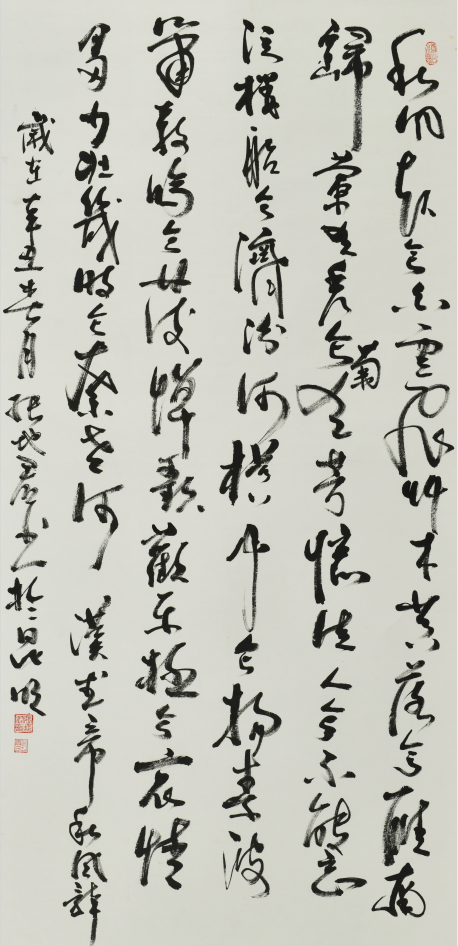 秋風起兮白雲飛艸木黃落兮雁南
歸蘭有秀兮菊有芳懷佳人兮不能忘
泛樓船兮濟汾河橫中兮揚素波
簫鼓鳴兮發棹歌歡樂極兮哀情
多少壯幾時兮奈老何 漢武帝秋風辭
歲在辛丑春月張君書於昆明